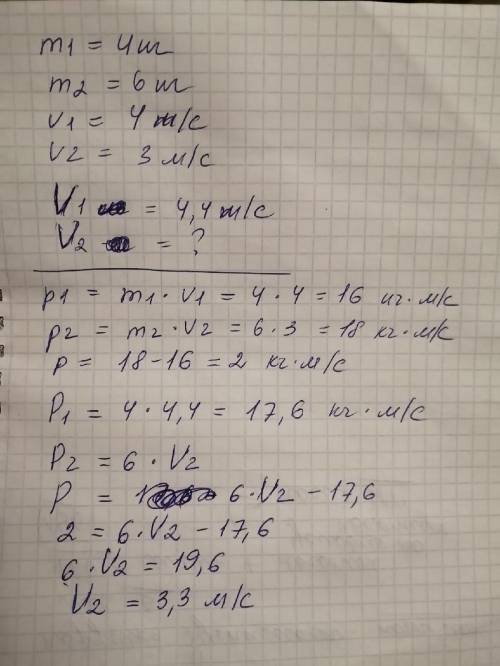 m1 = 4 кг
m2 = 6 кг
v1 = 4 м/с
v2 = 3 м/с
V1 = 4,4 м/с
V2 = ?
p1 = m1 · v1 = 4 · 4 = 16 кг · м/с
p2 = m2 · v2 = 6 · 3 = 18 кг · м/с
p = 18 - 16 = 2 кг · м/с
P1 = 4 · 4,4 = 17,6 кг · м/с
P2 = 6 · V2
P = 6 · V2 - 17,6
2 = 6 · V2 - 17,6
6 · V2 = 19,6
V2 = 3,3 м/с